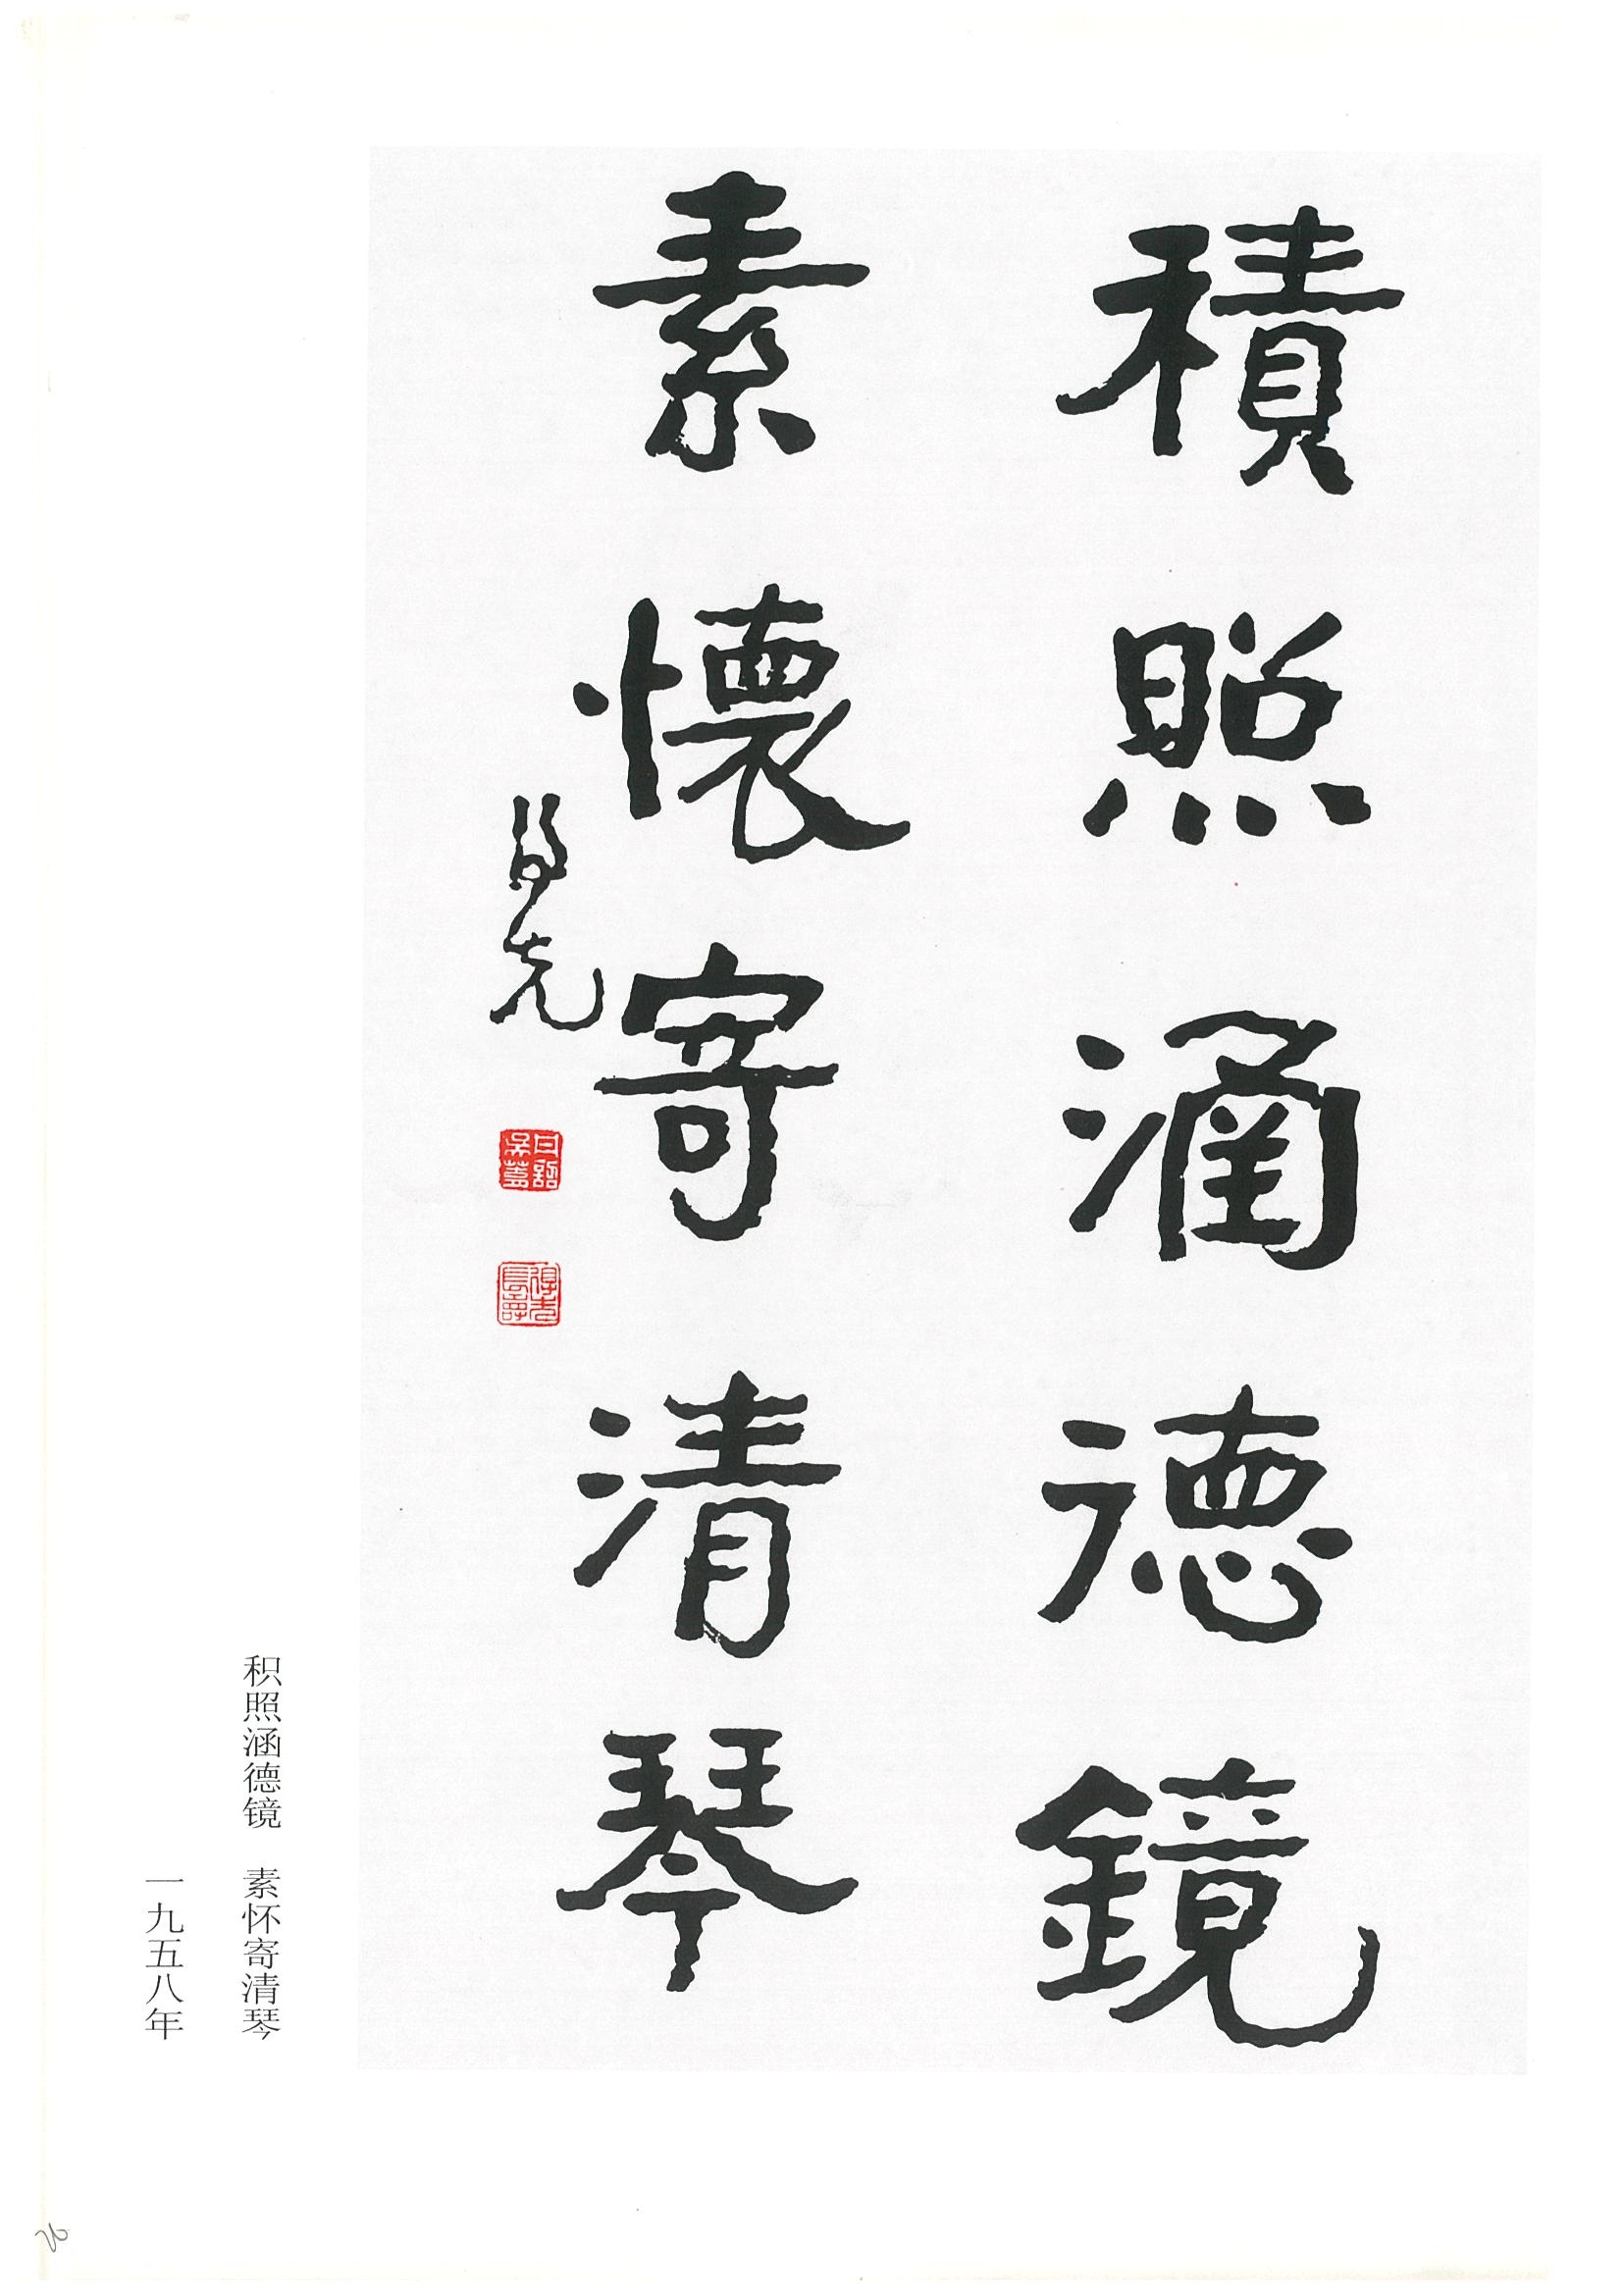 積照涵德鏡
素懷寄清琴
积照涵德镜　素怀寄清琴
一九五八年